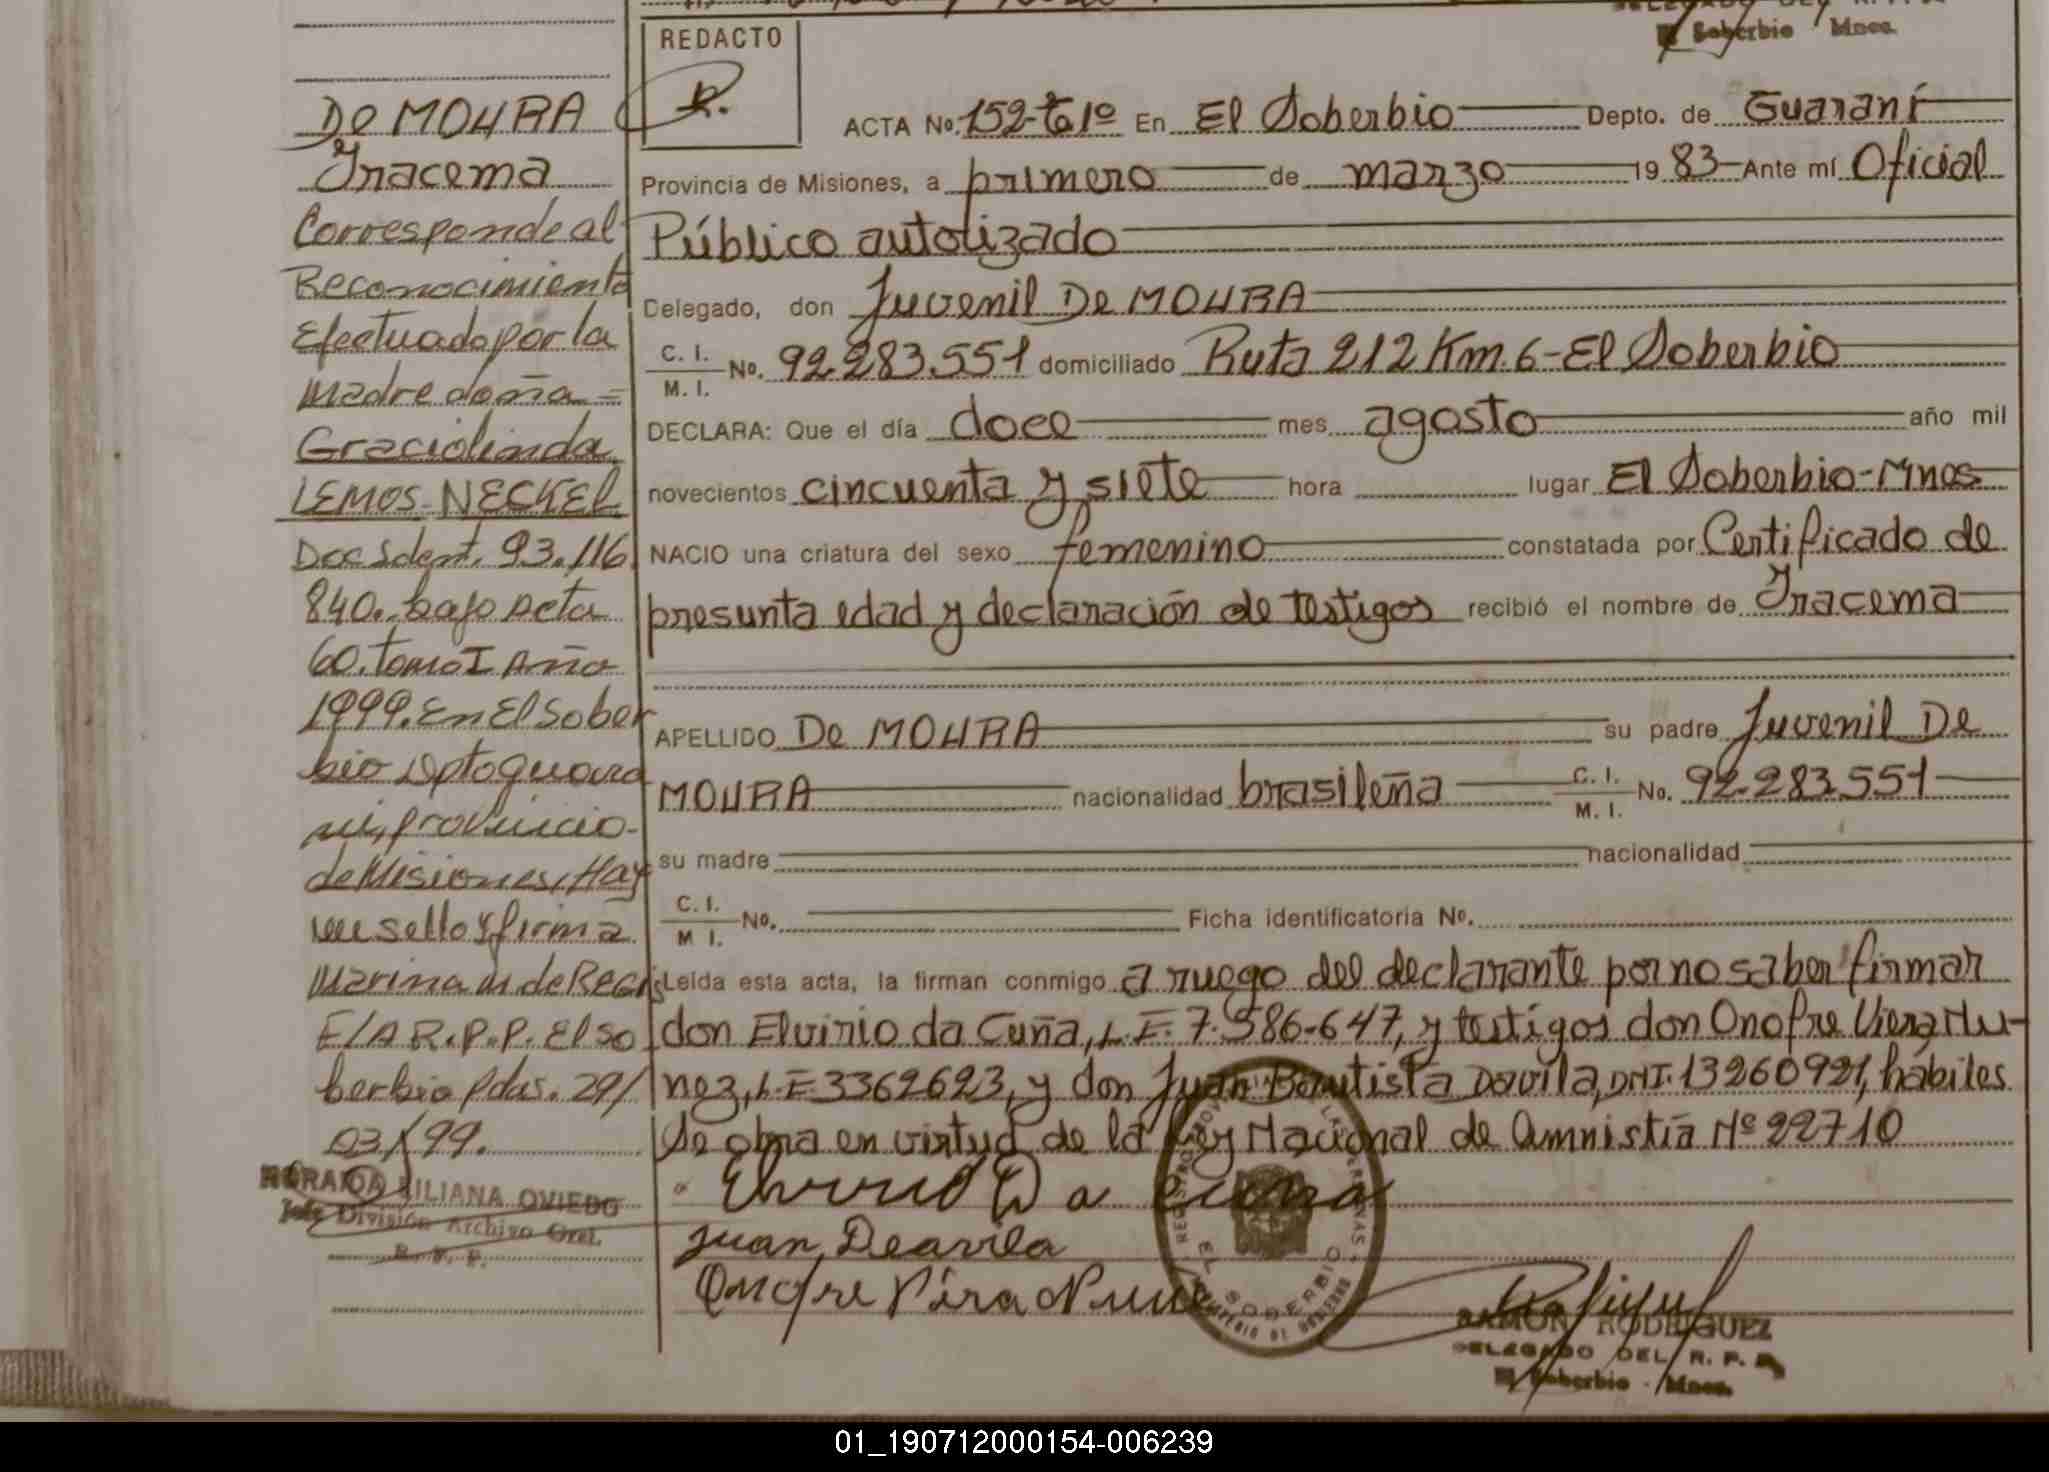 Soberbio Mnes.
REDACTO
R.
DE MOURA
Iracema
Corresponde al
Reconocimiento
Efectuado por la
Madre doña =
Graciolinda
LEMOS NECKEL
Doc Ident. 93.116
840. bajo Acta
60. Tomo I Año
1999. En El Sober
bio Dpto Guara
ni, provincia
de Misiones, Hay
un sello y firma
Marina M de Regis
E/A R.P.P. El So
berbio Pdas. 29/
03/99.
HORAIDA LILIANA OVIEDO
Jefe División Archivo Gral.
R. P. P.
ACTA No. 152-Tº 1º En El Soberbio Depto. de Guaraní
Provincia de Misiones, a primero de marzo 19 83 Ante mí Oficial
Público autorizado
Delegado, don Juvenil De MOURA
C. I. / M. I. No. 92.283.551 domiciliado Ruta 212 Km. 6 - El Soberbio
DECLARA: Que el día doce mes agosto año mil
novecientos cincuenta y siete hora lugar El Soberbio-Mnes
NACIO una criatura del sexo femenino constatada por Certificado de
presunta edad y declaración de testigos recibió el nombre de Iracema
APELLIDO De MOURA su padre Juvenil De
MOURA nacionalidad brasileña C. I. / M. I. No. 92.283.551
su madre nacionalidad
C. I. / M I. No. Ficha identificatoria No.
Leída esta acta, la firman conmigo a ruego del declarante por no saber firmar
don Elvirio da Cuña, L.E. 7.586.647, y testigos don Onofre Viera Nu-
nez, L.E 3362623, y don Juan Bautista Davila, DNI. 13260921, habiles
Se obra en virtud de la Ley Nacional de Amnistía Nº 22710
Juan Deavila
Onofre
EL SOBERBIO
RAMON RODRIGUEZ
DELEGADO DEL R. P. P.
El Soberbio - Mnes.
01_190712000154-006239